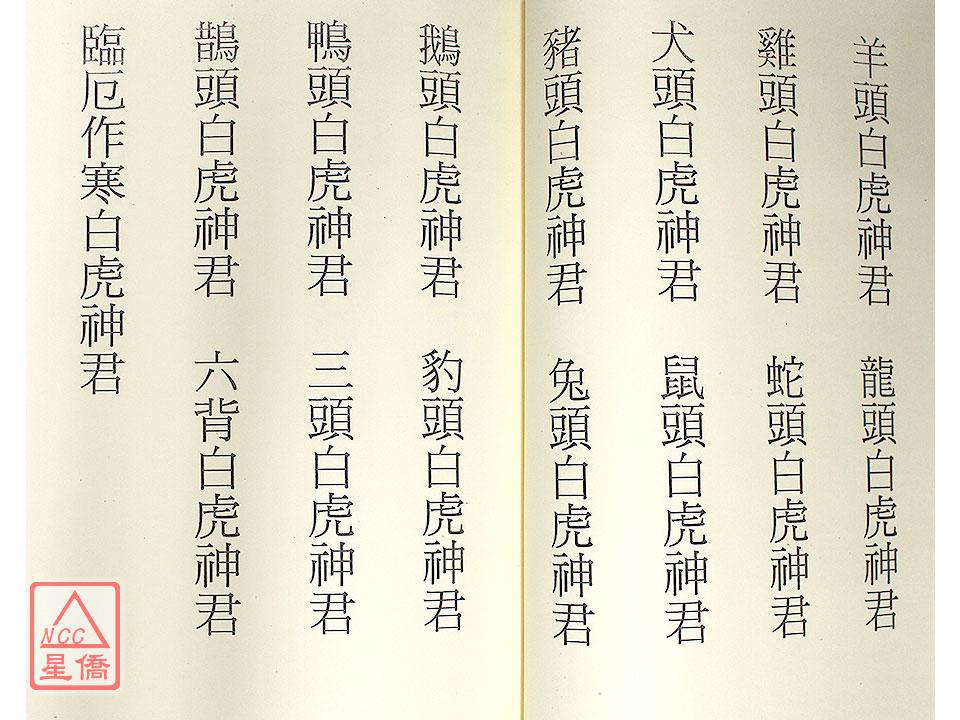 羊頭白虎神君　龍頭白虎神君
雞頭白虎神君　蛇頭白虎神君
犬頭白虎神君　鼠頭白虎神君
豬頭白虎神君　兔頭白虎神君
鵝頭白虎神君　豹頭白虎神君
鴨頭白虎神君　三頭白虎神君
鵲頭白虎神君　六背白虎神君
臨厄作寒白虎神君
NCC
星僑